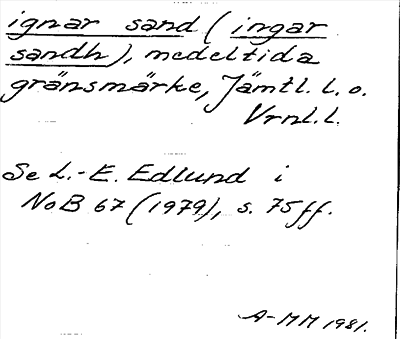 ignar sand (ingar
sandh), medeltida
gränsmärke, Jämtl. l. o.
Vrnl. l.
Se L.-E. Edlund i
NoB 67 (1979), s. 75 ff.
A-MM 1981.